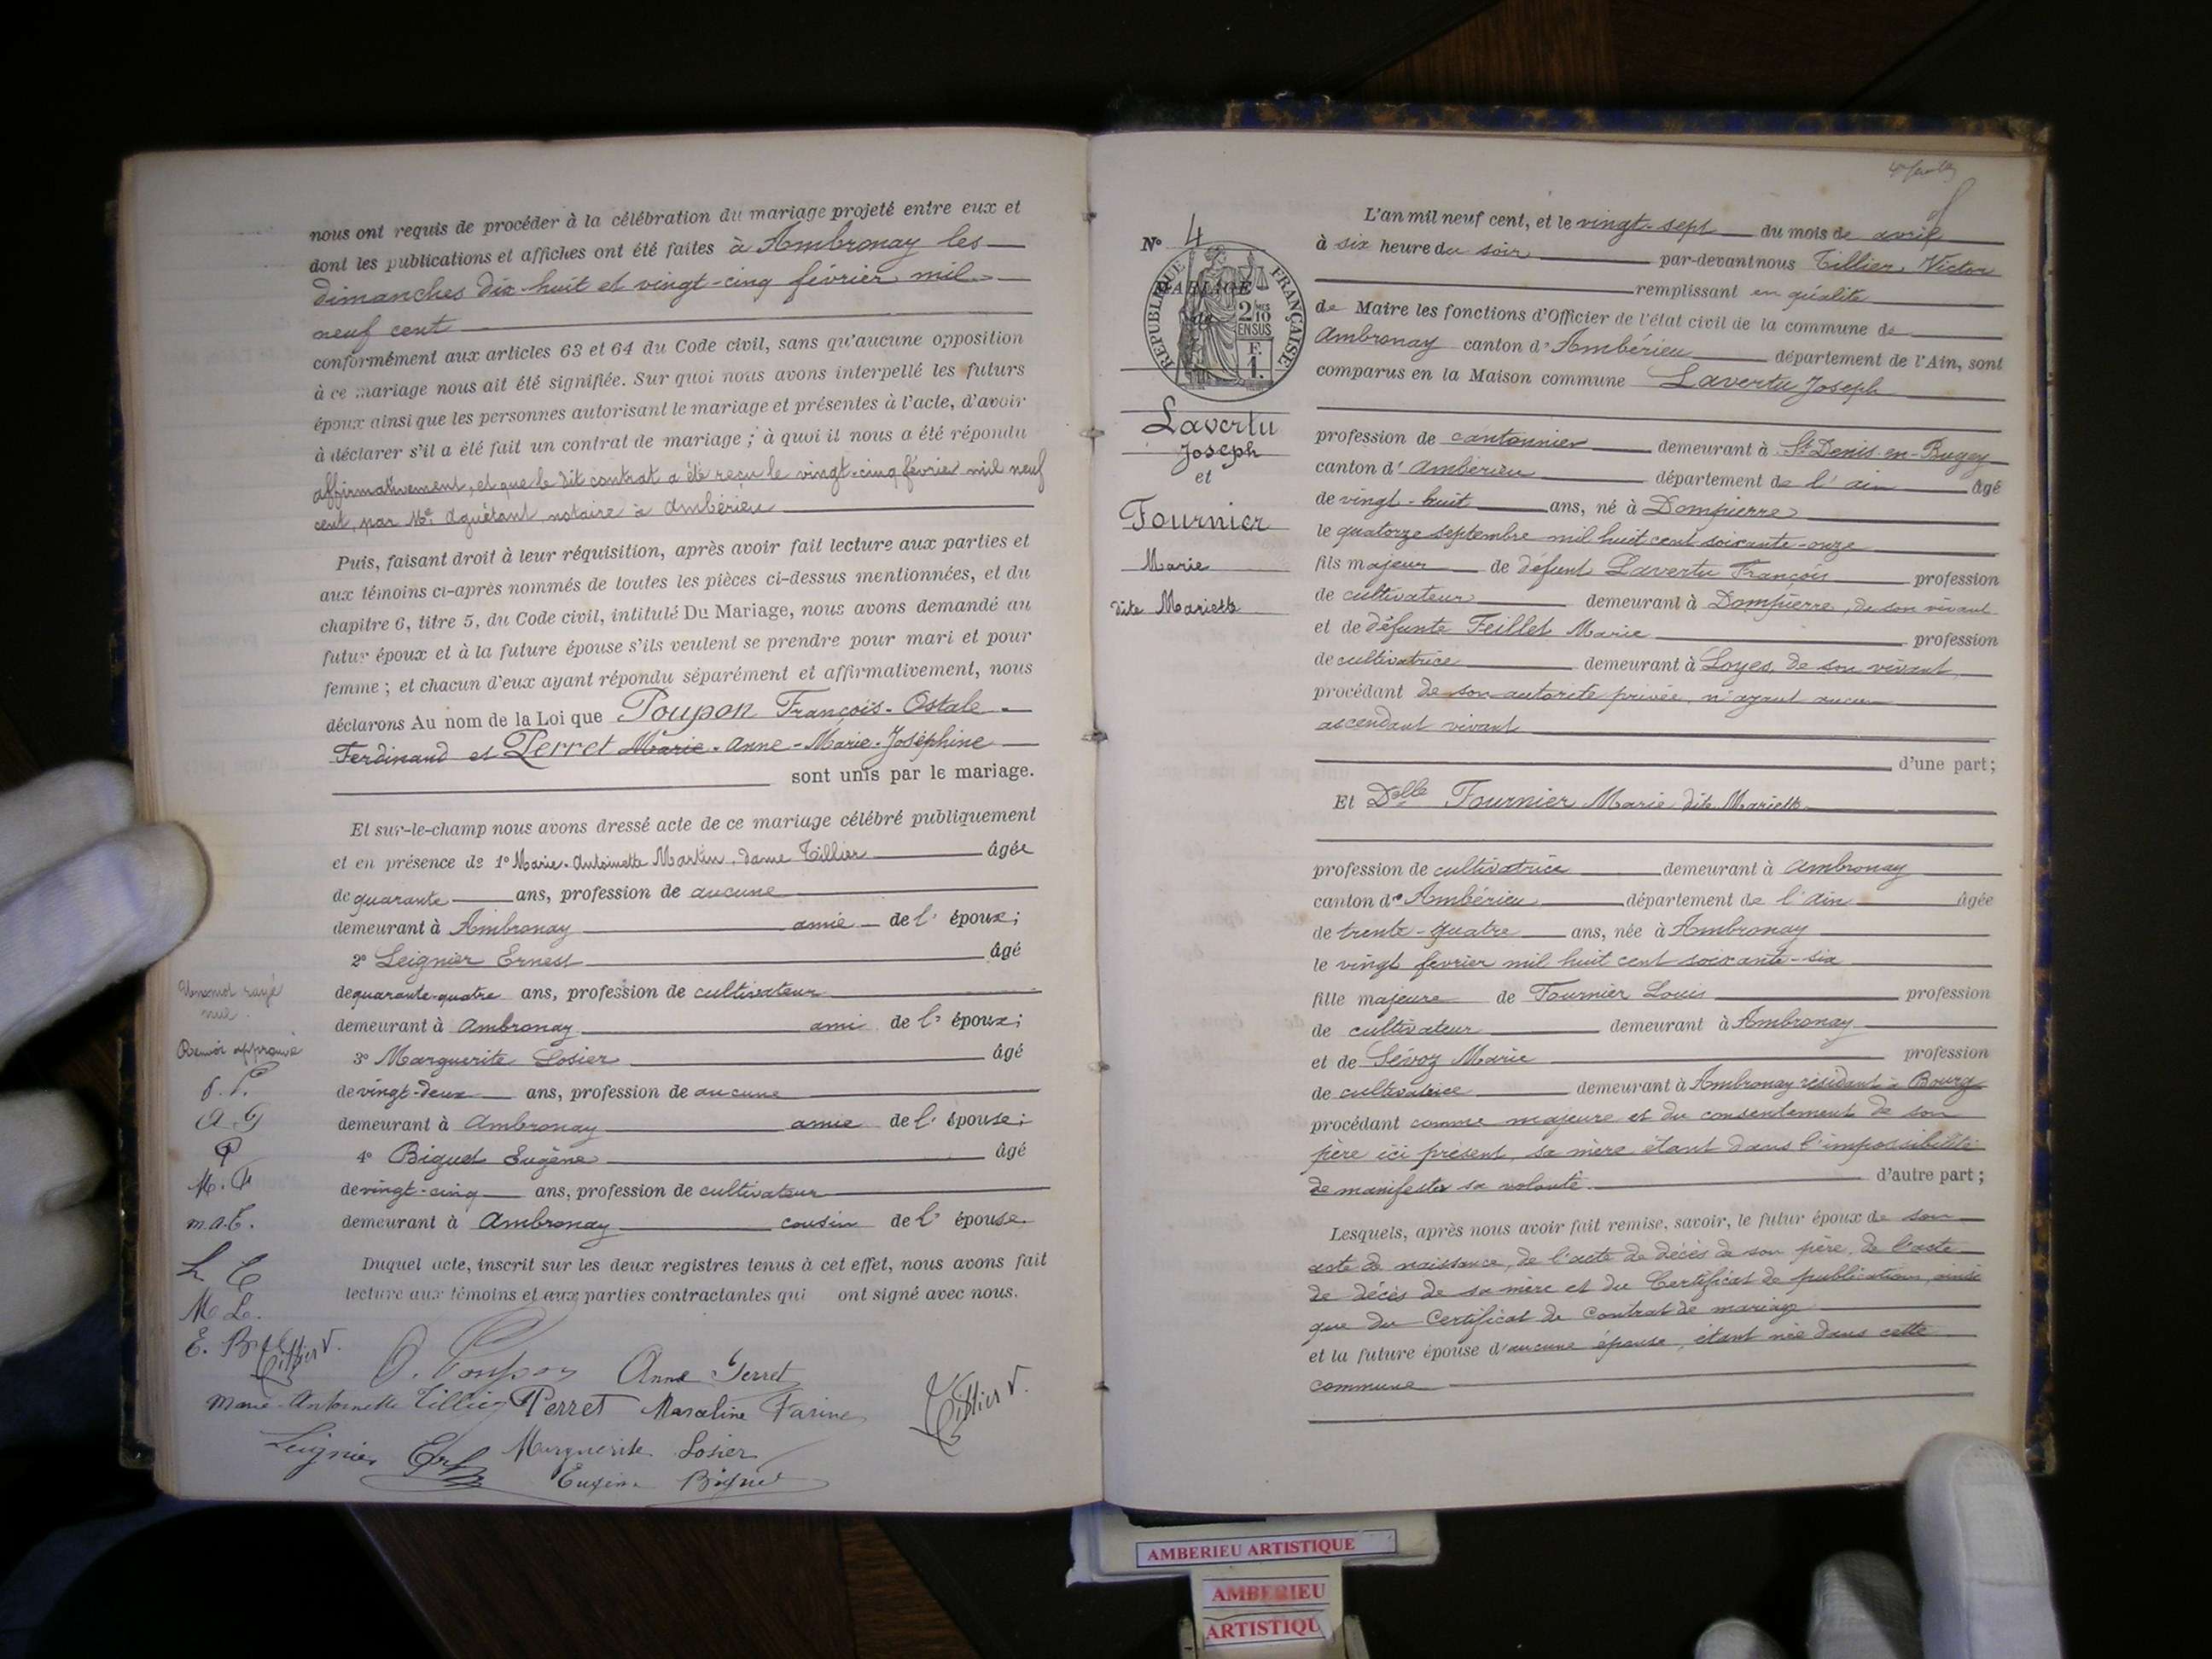 nous ont requis de procéder à la célébration du mariage projeté entre eux et
dont les publications et affiches ont été faites à Ambronay les
dimanches dix huit et vingt-cinq février mil
neuf cent
conformément aux articles 63 et 64 du Code civil, sans qu'aucune opposition
à ce mariage nous ait été signifiée. Sur quoi nous avons interpellé les futurs
époux ainsi que les personnes autorisant le mariage et présentes à l'acte, d'avoir
à déclarer s'il a été fait un contrat de mariage ; à quoi il nous a été répondu
affirmativement, et que le dit contrat a été reçu le vingt-cinq février mil neuf
cent, par Me Aguétant, notaire à Ambérieu
Puis, faisant droit à leur réquisition, après avoir fait lecture aux parties et
aux témoins ci-après nommés de toutes les pièces ci-dessus mentionnées, et du
chapitre 6, titre 5, du Code civil, intitulé Du Mariage, nous avons demandé au
futur époux et à la future épouse s'ils veulent se prendre pour mari et pour
femme ; et chacun d'eux ayant répondu séparément et affirmativement, nous
déclarons Au nom de la Loi que Poupon François-Ostale
Ferdinand et Perret Marie-Anne-Marie-Joséphine
sont unis par le mariage.
Et sur-le-champ nous avons dressé acte de ce mariage célébré publiquement
et en présence de 1° Marie-Antoinette Martin, dame Tillier âgée
de quarante ans, profession de aucune
demeurant à Ambronay amie de l' époux ;
2° Leignier Ernest âgé
de quarante-quatre ans, profession de cultivateur
demeurant à Ambronay ami de l' époux ;
3° Marguerite Losier âgé
de vingt-deux ans, profession de aucune
demeurant à Ambronay amie de l' épouse ;
4° Biguet Eugène âgé
de vingt-cinq ans, profession de cultivateur
demeurant à Ambronay cousin de l' épouse
Duquel acte, inscrit sur les deux registres tenus à cet effet, nous avons fait
lecture aux témoins et aux parties contractantes qui ont signé avec nous.
Un mot rayé
nul.
Renvoi approuvé
A. G
P
M. F
m.a.T.
M L.
Tillier V.
O. Poupon Anne Perret
Marie-Antoinette Tillier Perret Marceline Farine
Tillier V.
Leignier Marguerite Losier
Eugène Biguet
N° 4
REPUBLIQUE FRANÇAISE
MARIAGE
de
2/10
EN SUS
Lavertu
Joseph
et
Fournier
Marie
dite Mariette
L'an mil neuf cent, et le vingt-sept du mois de avril
à six heure du soir par-devant nous Tillier, Victor
remplissant en qualité
de Maire les fonctions d'Officier de l'état civil de la commune de
Ambronay canton d' Ambérieu département de l'Ain, sont
comparus en la Maison commune Lavertu Joseph
profession de cantonnier demeurant à St Denis-en-Bugey
canton d' Ambérieu département de l' ain âgé
de vingt-huit ans, né à Dompierre
le quatorze septembre mil huit cent soixante-onze
fils majeur de défunt Lavertu François profession
de cultivateur demeurant à Dompierre, de son vivant
et de défunte Feillet Marie profession
de cultivatrice demeurant à Loyes, de son vivant,
procédant de son autorité privée, n'ayant aucun
ascendant vivant
d'une part ;
Et Delle Fournier Marie dite Mariette
profession de cultivatrice demeurant à Ambronay
canton d' Ambérieu département de l' Ain âgée
de trente-quatre ans, née à Ambronay
le vingt février mil huit cent soixante-six
fille majeure de Fournier Louis profession
de cultivateur demeurant à Ambronay
et de Sévoz Marie profession
de cultivatrice demeurant à Ambronay résidant à Bourg
procédant comme majeure et du consentement de son
père ici présent, sa mère étant dans l'impossibilité
de manifester sa volonté d'autre part ;
Lesquels, après nous avoir fait remise, savoir, le futur époux de son
acte de naissance, de l'acte de décès de son père, de l'acte
de décès de sa mère et du Certificat de publication, ainsi
que du Certificat de Contrat de mariage
et la future épouse d'aucune épouse, étant née dans cette
commune
AMBERIEU ARTISTIQUE
AMBERIEU
ARTISTIQU